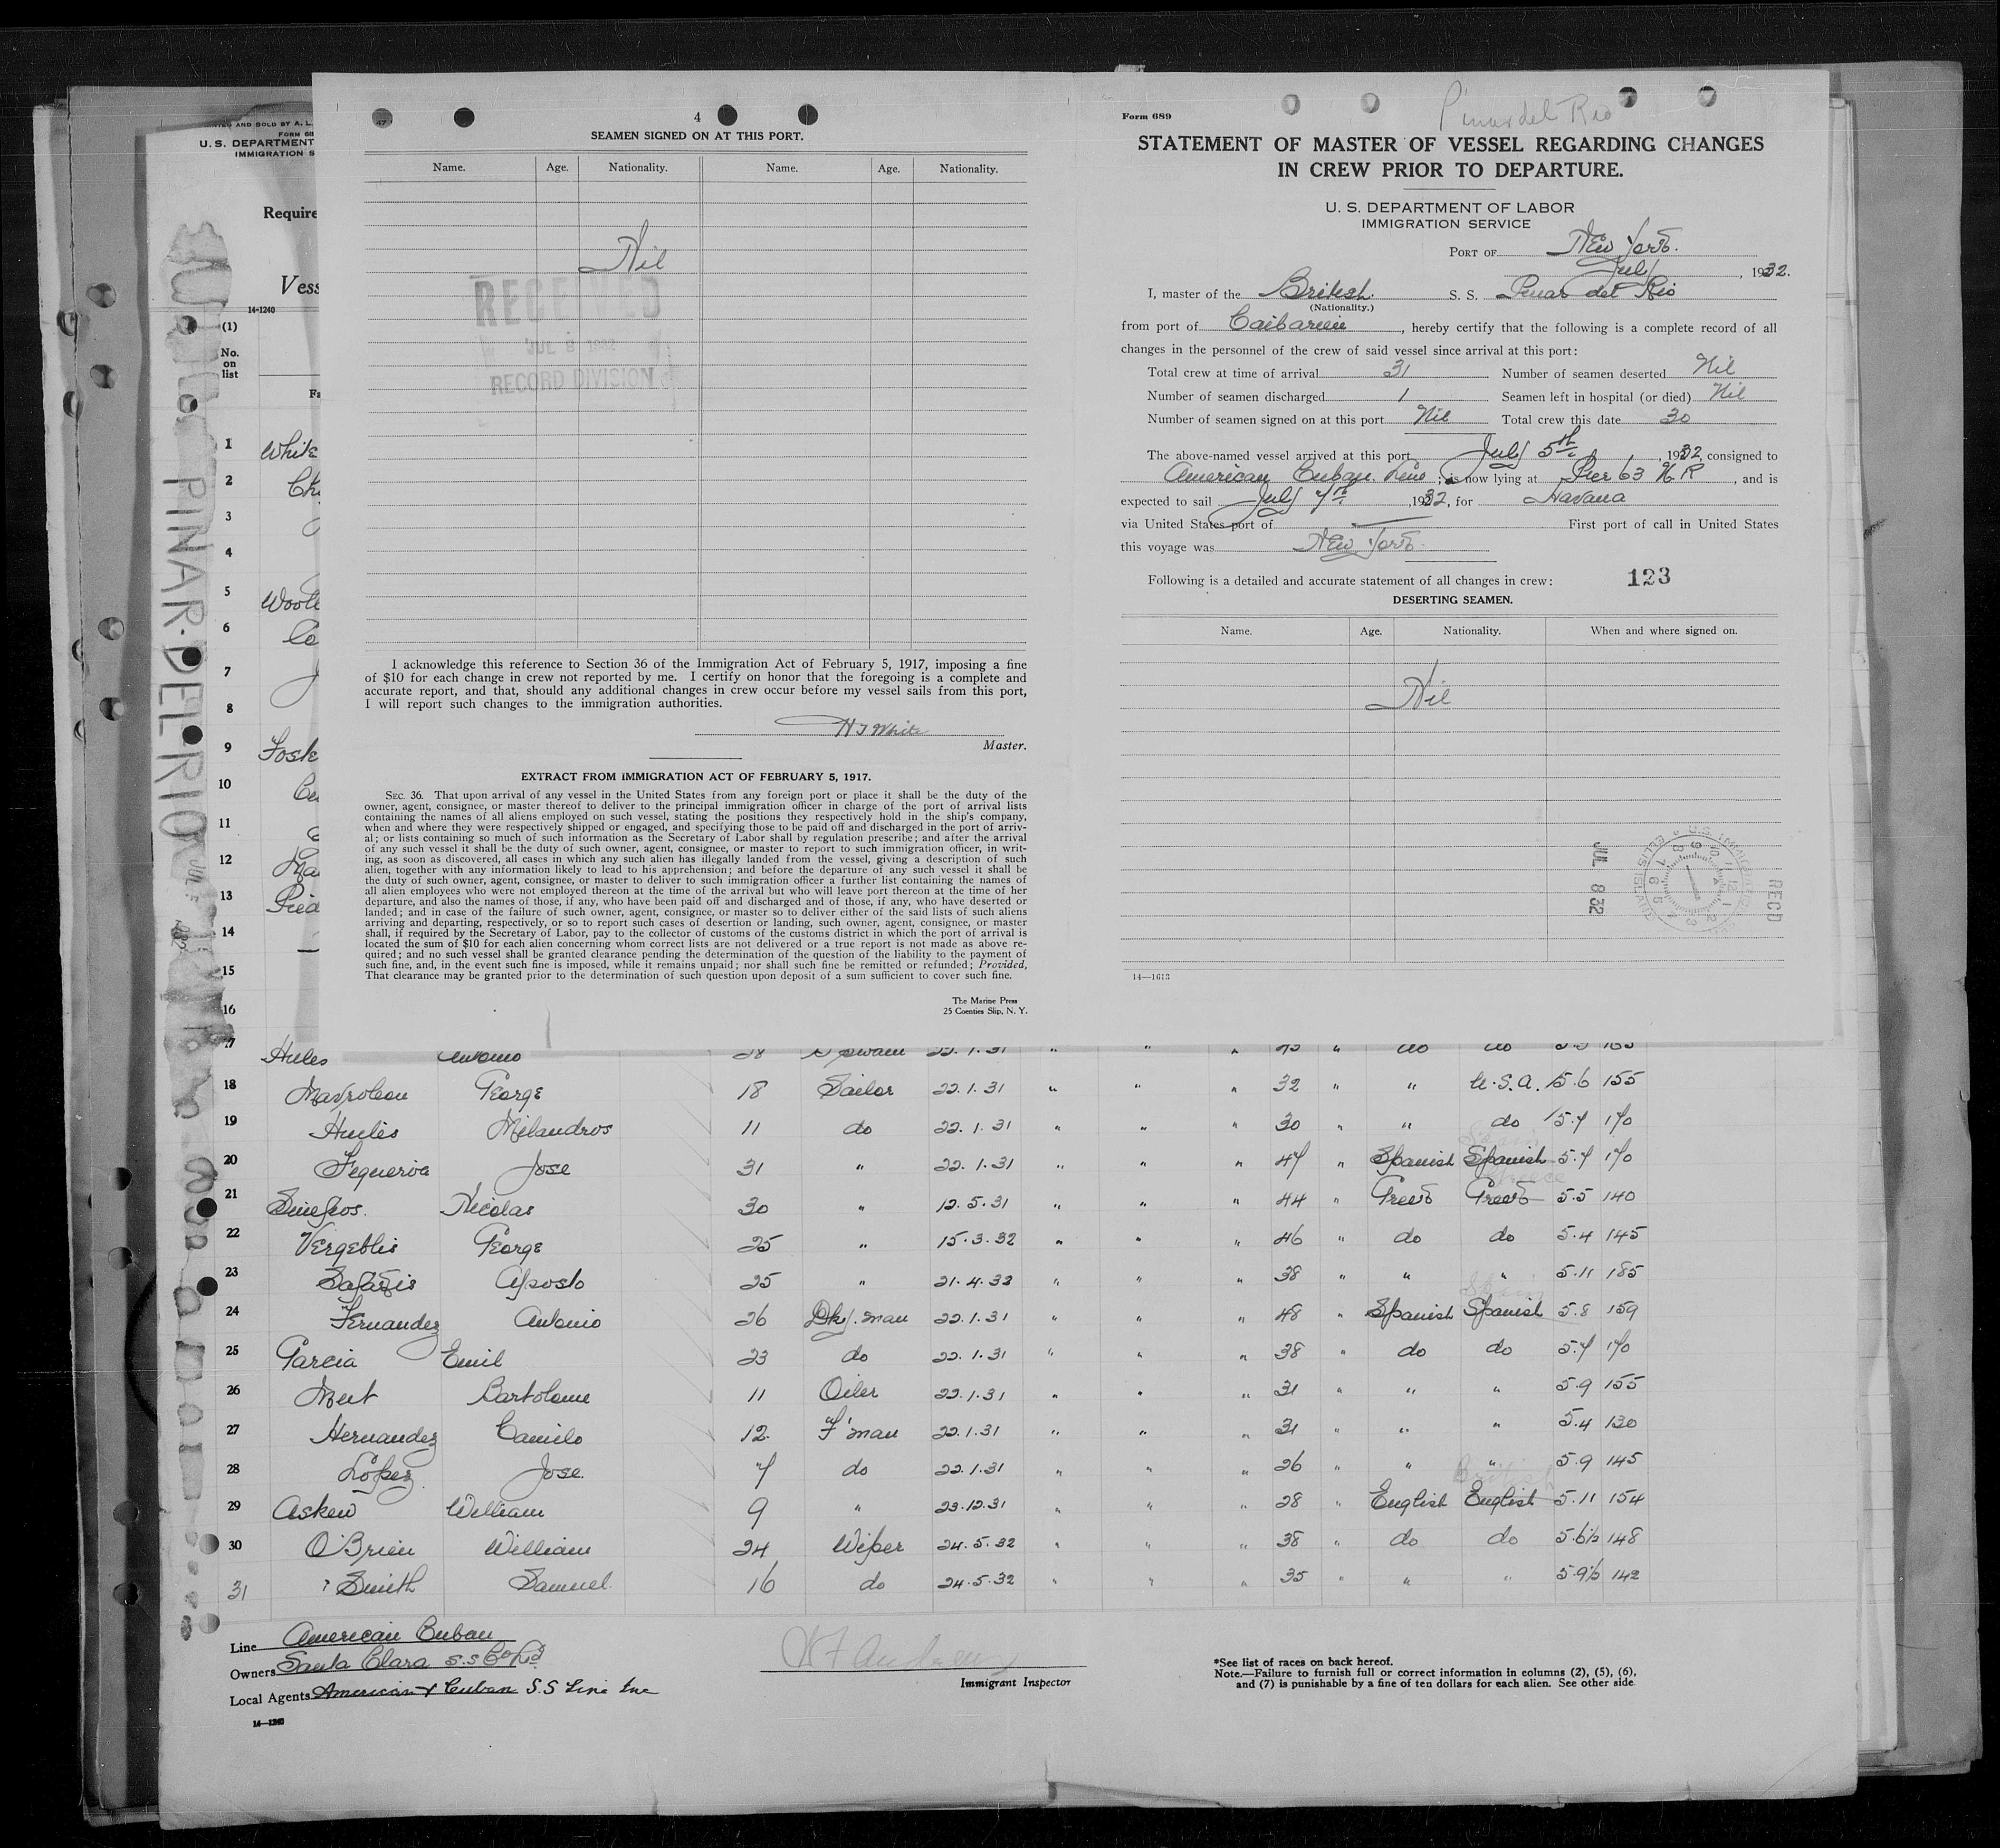 4
SEAMEN SIGNED ON AT THIS PORT.
Name. Age. Nationality. Name. Age. Nationality.
Nil
RECEIVED
JUL 8 1932
RECORD DIVISION
I acknowledge this reference to Section 36 of the Immigration Act of February 5, 1917, imposing a fine
of $10 for each change in crew not reported by me. I certify on honor that the foregoing is a complete and
accurate report, and that, should any additional changes in crew occur before my vessel sails from this port,
I will report such changes to the immigration authorities.
H J White
Master.
EXTRACT FROM IMMIGRATION ACT OF FEBRUARY 5, 1917.
SEC. 36. That upon arrival of any vessel in the United States from any foreign port or place it shall be the duty of the
owner, agent, consignee, or master thereof to deliver to the principal immigration officer in charge of the port of arrival lists
containing the names of all aliens employed on such vessel, stating the positions they respectively hold in the ship's company,
when and where they were respectively shipped or engaged, and specifying those to be paid off and discharged in the port of arriv-
al; or lists containing so much of such information as the Secretary of Labor shall by regulation prescribe; and after the arrival
of any such vessel it shall be the duty of such owner, agent, consignee, or master to report to such immigration officer, in writ-
ing, as soon as discovered, all cases in which any such alien has illegally landed from the vessel, giving a description of such
alien, together with any information likely to lead to his apprehension; and before the departure of any such vessel it shall be
the duty of such owner, agent, consignee, or master to deliver to such immigration officer a further list containing the names of
all alien employees who were not employed thereon at the time of the arrival but who will leave port thereon at the time of her
departure, and also the names of those, if any, who have been paid off and discharged and of those, if any, who have deserted or
landed; and in case of the failure of such owner, agent, consignee, or master so to deliver either of the said lists of such aliens
arriving and departing, respectively, or so to report such cases of desertion or landing, such owner, agent, consignee, or master
shall, if required by the Secretary of Labor, pay to the collector of customs of the customs district in which the port of arrival is
located the sum of $10 for each alien concerning whom correct lists are not delivered or a true report is not made as above re-
quired; and no such vessel shall be granted clearance pending the determination of the question of the liability to the payment of
such fine, and, in the event such fine is imposed, while it remains unpaid; nor shall such fine be remitted or refunded; Provided,
That clearance may be granted prior to the determination of such question upon deposit of a sum sufficient to cover such fine.
The Marine Press
25 Coenties Slip, N. Y.
Form 689
Pinar del Rio
STATEMENT OF MASTER OF VESSEL REGARDING CHANGES
IN CREW PRIOR TO DEPARTURE.
U. S. DEPARTMENT OF LABOR
IMMIGRATION SERVICE
PORT OF New York.
July, 1932.
I, master of the British S. S. Pinar del Rio
(Nationality.)
from port of Caibarien, hereby certify that the following is a complete record of all
changes in the personnel of the crew of said vessel since arrival at this port:
Total crew at time of arrival 31 Number of seamen deserted Nil
Number of seamen discharged 1 Seamen left in hospital (or died) Nil
Number of seamen signed on at this port Nil Total crew this date 30
The above-named vessel arrived at this port July 5th, 1932, consigned to
American Cuban Line; is now lying at Pier 63 N R, and is
expected to sail July 7th, 1932, for Havana
via United States port of — First port of call in United States
this voyage was New York
Following is a detailed and accurate statement of all changes in crew: 123
DESERTING SEAMEN.
Name. Age. Nationality. When and where signed on.
Nil
RECD
JUL 8 32
U.S. IMMIGRATION
ELLIS ISLAND
14—1613
PRINTED AND SOLD BY A. L.
FORM 68
U. S. DEPARTMENT
IMMIGRATION S
Require
Vess
14-1240
(1)
No.
on
list
Fa
PINAR-DEL-RIO
1 White
2
3
4
5
6 Co
7
8
9
10
11
12
13
14
15
16
17 Hules Antonio 28 22.1.31 " " " 43 " do do 165
18 Mavroleon George 18 Sailor 22.1.31 " " " 32 " " U.S.A. 5.6 155
19 Hules Milandros 11 do 22.1.31 " " " 30 " " do 5.7 170
20 Figueroa Jose 31 " 22.1.31 " " " 47 " Spanish Spanish 5.7 170
21 Nicolas 30 " 12.5.31 " " " 44 " Greek Greek 5.5 140
22 Vergetlis George 25 " 15.3.32 " " " 46 " do do 5.4 145
23 25 " 21.4.32 " " " 38 " " " 5.11 185
24 Fernandez Antonio 26 Dky.man 22.1.31 " " " 48 " Spanish Spanish 5.8 159
25 Garcia Emil 23 do 22.1.31 " " " 38 " do do 5.7 170
26 Mut Bartolome 11 Oiler 22.1.31 " " " 31 " " " 5.9 155
27 Hernandez Camilo 12 F'man 22.1.31 " " " 31 " " " 5.4 130
28 Lopez Jose. 7 do 22.1.31 " " " 26 " " " 5.9 145
29 Askew William 9 " 23.12.31 " " " 28 " English English British 5.11 154
30 O'Brien William 24 Wiper 24.5.32 " " " 38 " do do 5.6½ 148
31 Smith Samuel 16 do 24.5.32 " " " 35 " " " 5.9½ 142
Line American Cuban
Owners Santa Clara S.S Co Ltd
Local Agents American & Cuban S.S Line Inc
14—1240
Immigrant Inspector
*See list of races on back hereof.
Note.—Failure to furnish full or correct information in columns (2), (5), (6),
and (7) is punishable by a fine of ten dollars for each alien. See other side